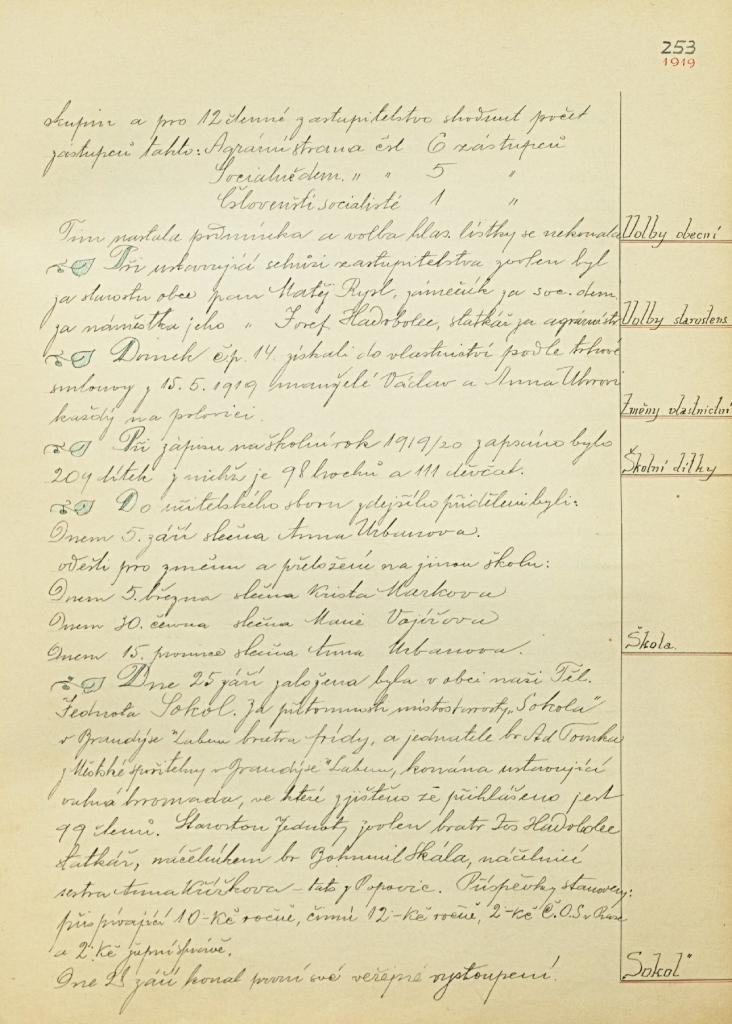 253
1919
skupin a pro 12 členné zastupitelstvo shodnut počet
zástupců takto: Agrární strana čsl 6 zástupců
Socialně dem. „ „ 5 „
Čslovenští socialisté 1 „
Tím nastala podmínka a volba hlas. lístky se nekonala
Volby obecní
Při ustavující schůzi zastupitelstva zvolen byl
za starostu obce pan Matěj Rysl, zámečník za soc. dem.
za náměstka jeho „ Josef Hadrbolec, statkář za agrární str
Volby starosens
Domek čp. 14. získali do vlastnictví podle trhové
smlouvy z 15. 5. 1919 manželé Václav a Anna
každý na polovici.
Změny vlastnictví
Při zápisu na školní rok 1919/20 zapsáno bylo
209 dítek z nichž je 98 hochů a 111 děvčat.
Školní dítky
Do učitelského sboru zdejšího přiděleni byli:
Dnem 5. září slečna Anna Urbanova.
odešli pro změnu a přeložení na jinou školu:
Dnem 5. března slečna Krista Markova
Dnem 30. června slečna Marie Vojířova
Dnem 15. prosince slečna Anna Urbanova.
Škola.
Dne 25 září založena byla v obci naší Těl.
Jednota Sokol. Za přítomnosti místostarosty „Sokola"
v Brandýse n/Labem bratra Frídy, a jednatele br. Ad Tomka
z Městské spořitelny v Brandýse n/Labem, konána ustavující
valná hromada, ve které zjištěno že přihlášeno jest
99 členů. Starostou Jednoty zvolen bratr Jos Hadrbolec
statkář, náčelníkem br Bohumil Skála, náčelnicí
sestra Anna Křížkova – tato z Popovic. Příspěvky stanoveny:
přispívající 10-Kč ročně, činní 12-Kč ročně, 2-Kč Č.O.S v Praze
a 2 Kč župní správě.
Dne 28 září konal první své veřejné vystoupení.
„Sokol"